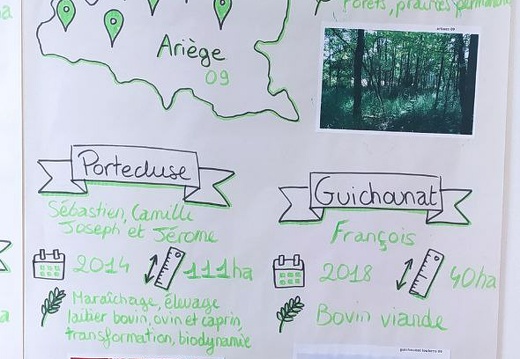 Forêts, prairies permanente
Ariège
09
Portecluse
Sébastien, Camille
Joseph et Jérôme
2014
111ha
Maraîchage, élevage
laitier bovin, ovin et caprin
transformation, biodynamie
Guichounat
François
2018
40ha
Bovin viande